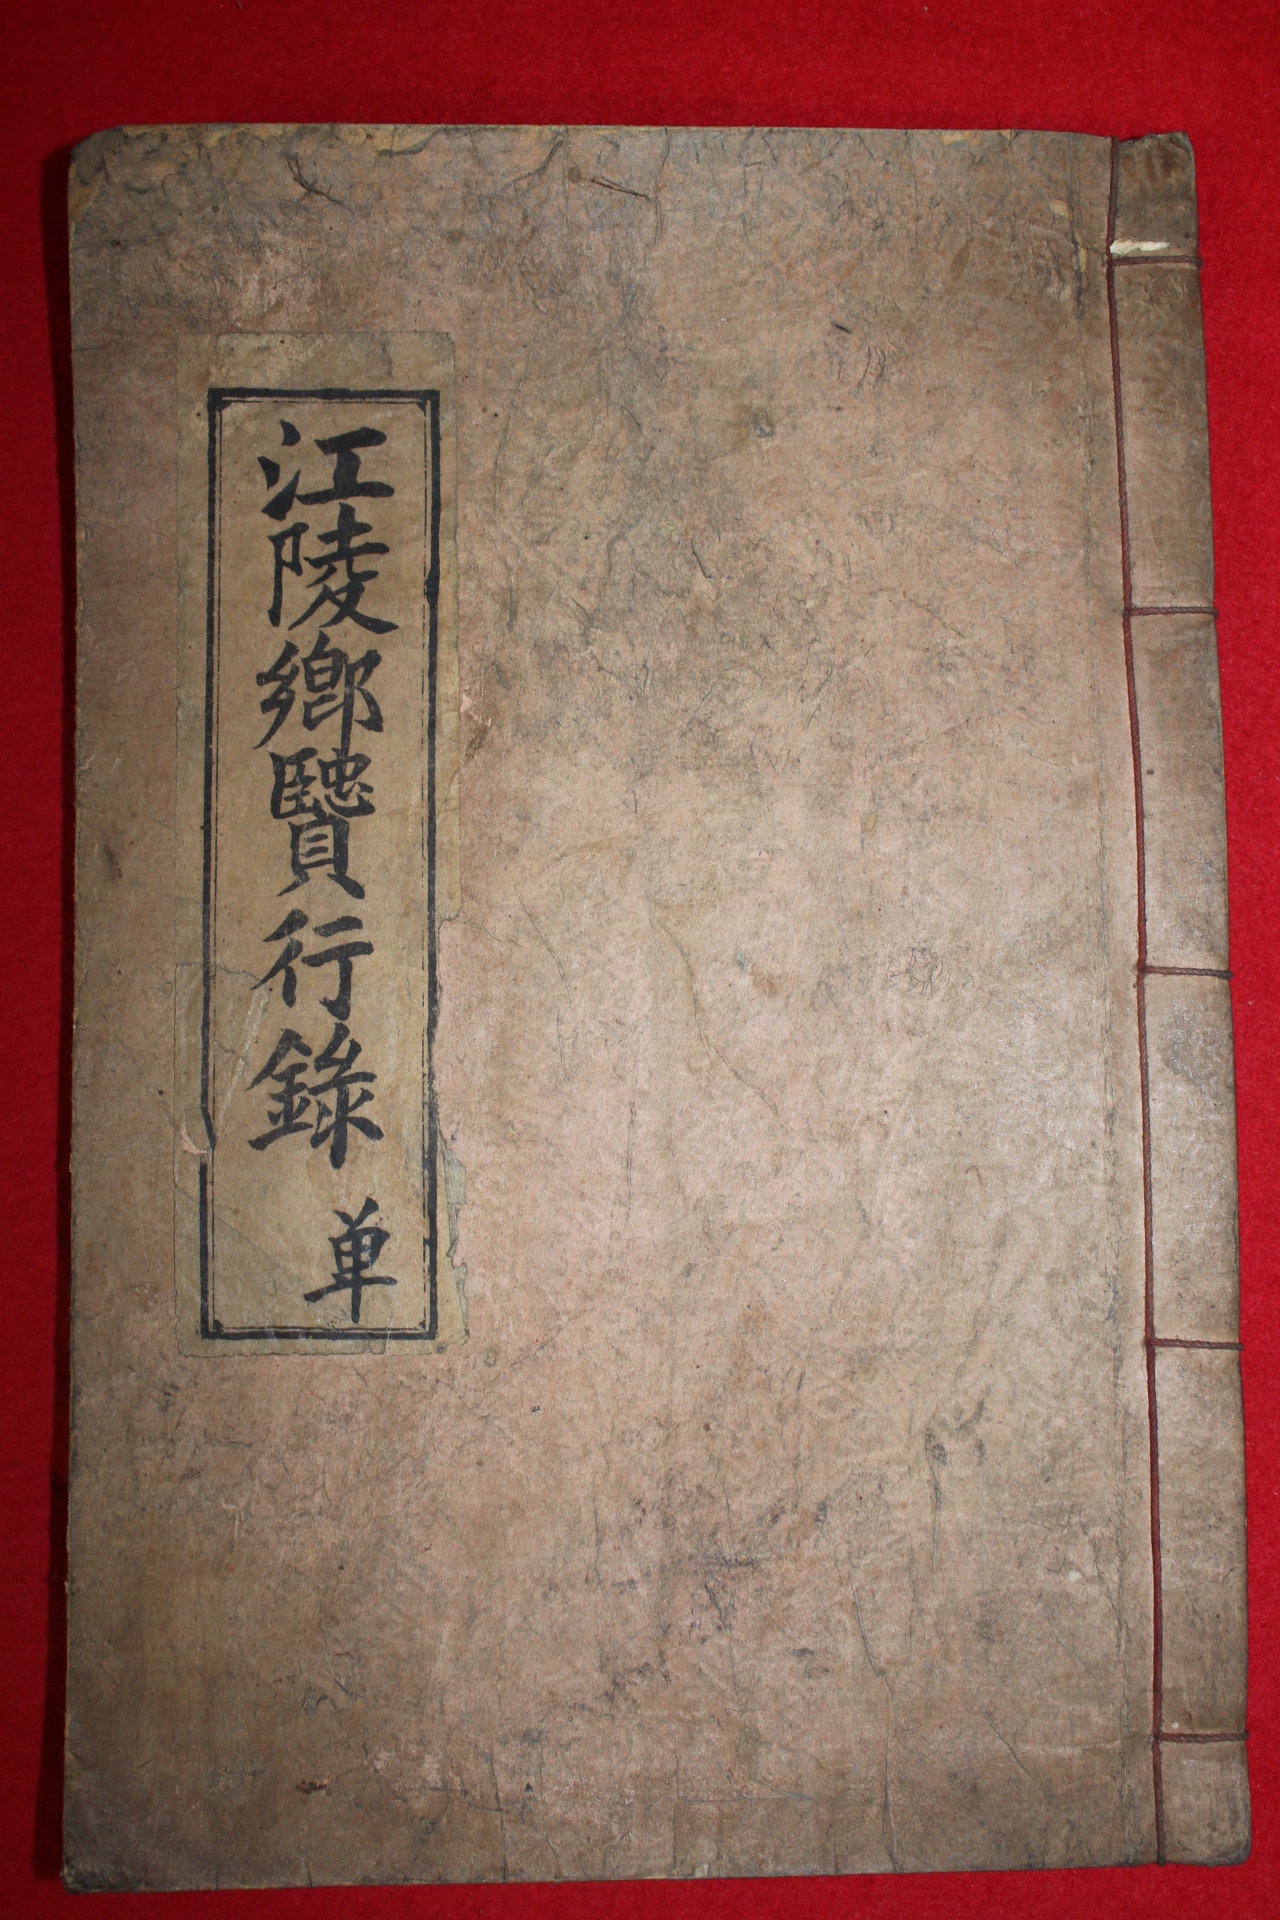 江陵鄉贒行錄 单